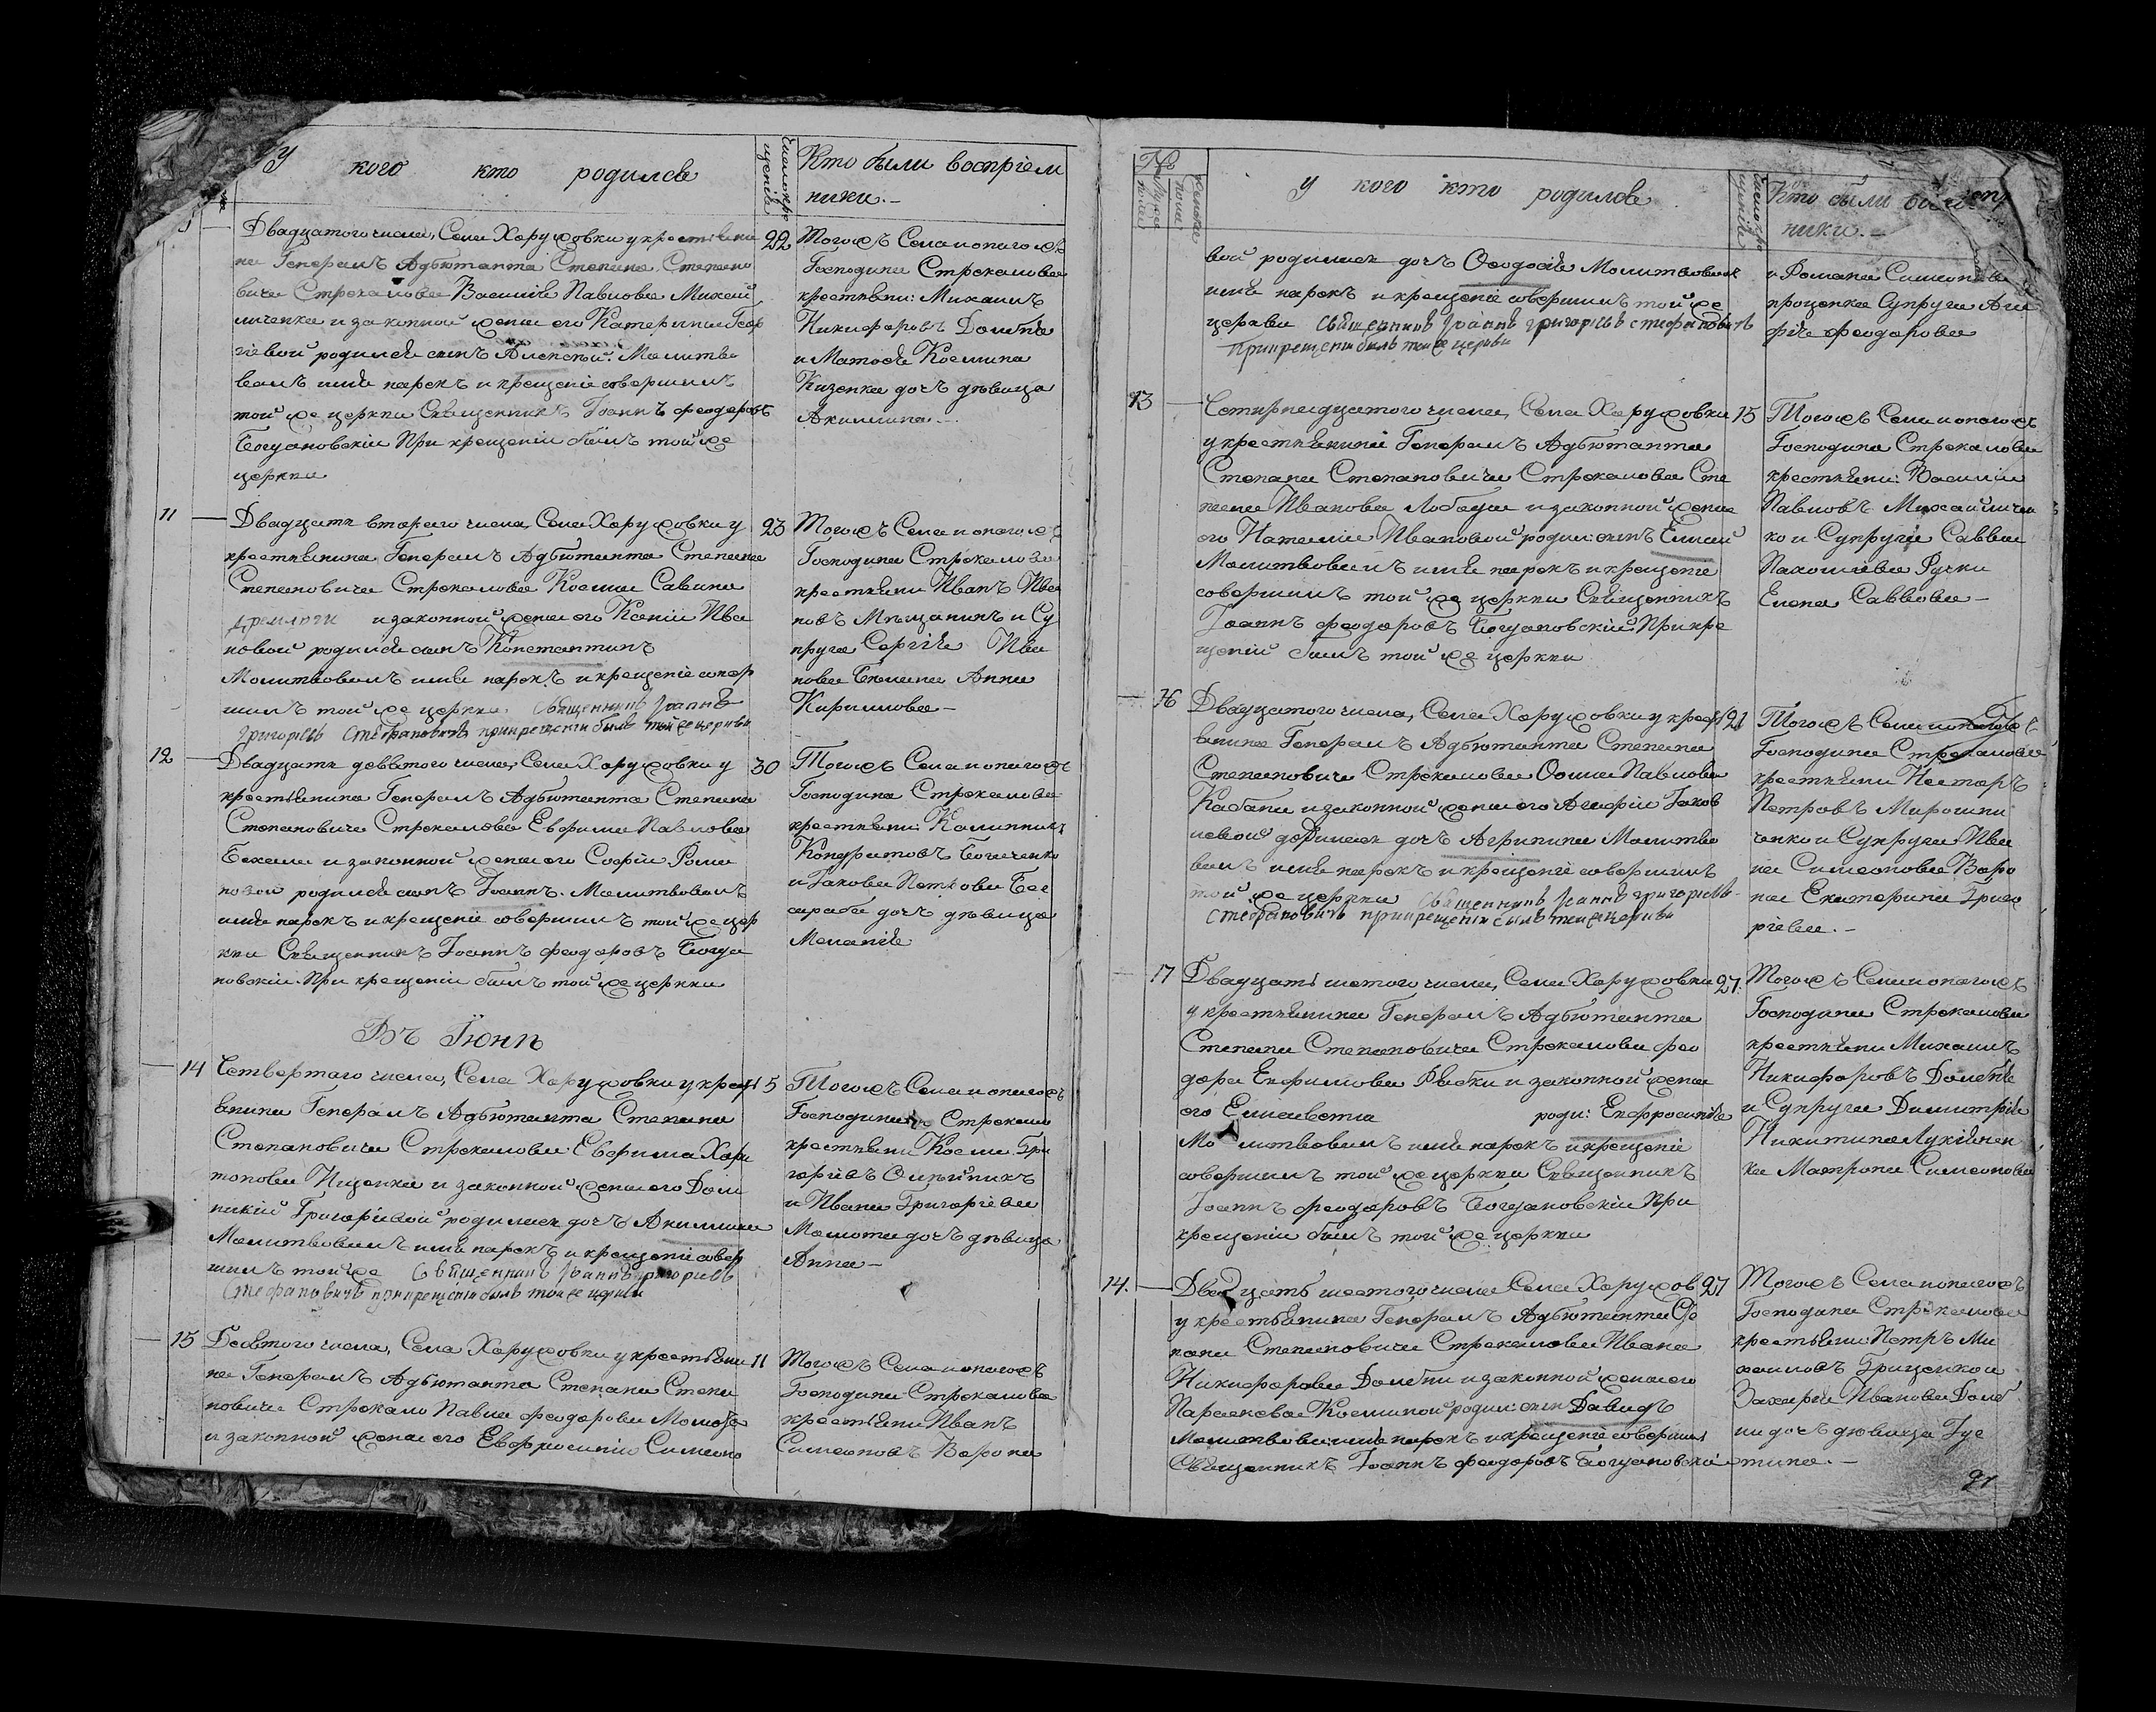 У кого кто родился
Числокрещенія
Кто были воспріем
ники.-
Двадцатого числа, Села Харужовки у крестьяни
на Генералъ Адъютанта Степана Степано
вича Стрекалова Василія Павлова Михай
личенка и законной жены его Катерины Геор
гіевой родился сынъ Алексѣй. Молитво
валъ имя нарокъ и крещеніе совершилъ
той же церкви Священникъ Іоаннъ Феодоровъ
Богдановскій При крещеніи былъ той же
церкви
22
Того жъ Села и оного жъ
Господина Стрекалова
крестьяни: Михаилъ
Никифоровъ Долбня
и Матфѣя Космина
Кизенка дочъ дѣвица
Акилина.-
11
Двадцать второго числа, Села Харужовки у
крестьянина Генералъ Адъютанта Степана
Степановича Стрекалова Космы Савина
и законной жены его Ксеніи Ива
новой родился сынъ Константинъ
Молитвовалъ имя нарокъ и крещеніе совер
шилъ той же церкви. Священникъ Іоаннъ
Григорьевъ Стефановичъ прикрещеніи былъ той же церкви
23
Того жъ Села и оного жъ
Господина Стрекалова
крестьяни Иванъ Ива
новъ Мѣщанинъ и Су
пруга Сергѣя Ива
нова Анна
Кирилова-
12
Двадцать девятого числа, Села Харужовки у
крестьянина Генералъ Адъютанта Степана
Степановича Стрекалова Евфима Павлова
и законной жены его Софіи Рома
новой родился сынъ Іоаннъ. Молитвовалъ
имя нарокъ и крещеніе совершилъ той же цер
кви Священникъ Іоаннъ Феодоровъ Богда
новскій. При крещеніи былъ той же церкви
30
Того жъ Села и оного жъ
Господина Стрекалова
крестьяни: Калинникъ
Кондратовъ
и Іакова Петрова Бес
сараба дочъ дѣвица
Меланія
Въ Іюнѣ
14
Четвертаго числа, Села Харужовки у крест
янина Генералъ Адъютанта Степана
Степановича Стрекалова Евфима Хари
тонова Ищенка и законной жены его Дом
никіи Григоріевой родилась дочъ Акилина
Молитвовалъ имя нарокъ и крещеніе совер
шилъ той же Священникъ Іоаннъ Григорьевъ
Стефановичъ прикрещеніи былъ той же церкви
5
Того жъ Села и оного жъ
Господина Стрекалова
крестьяни Косма Гри
горіевъ Олѣйникъ
и Ивана Григоріева
дочъ дѣвица
Анна-
15
Десятого числа, Села Харужовки у крестьяни
на Генералъ Адъютанта Степана Степа
новича Стрекало Павла Феодорова
и законной жены его Евфросиніи Симеоно
11
Того жъ Села и оного жъ
Господина Стрекалова
крестьяни Иванъ
Симеоновъ Ворона
№
Мужеска полу
женска
У кого кто родился
Числокрещенія
Кто были
ники.-
вой родилась дочъ Феодосія Молитвовалъ
имя нарокъ и крещеніе совершилъ той же
церкви Священникъ Іоаннъ Григорьевъ Стефановичъ
Прикрещеніи былъ той же церкви
и Романа Симеонова
Проценка Супруга Ага
фія Феодорова
13
Четырнадцатого числа, Села Харужовки
у крестьянина Генералъ Адъютанта
Степана Степановича Стрекалова Сте
пана Иванова Лободы и законной жены
его Наталіи Ивановой родил: сынъ Елисей
Молитвовалъ имя нарокъ и крещеніе
совершилъ той же церкви Священникъ
Іоаннъ Феодоровъ Богдановскій При кре
щеніи былъ той же церкви
15
Того жъ Села и оного жъ
Господина Стрекалова
крестьяни: Василій
Павловъ Михайличен
ко и Супруга Саввы
Пахоміева Ручки
Елена Саввова-
16
Двадцатого числа, Села Харужовки у крест
янина Генералъ Адъютанта Степана
Степановича Стрекалова Фомы Павлова
Кабана и законной жены его Агафіи Іаков
левой родилась дочъ Агрипина Молитво
валъ имя нарокъ и крещеніе совершилъ
той же церкви Священникъ Іоаннъ Григорьевъ
Стефановичъ прикрещеніи былъ той же церкви
21
Того жъ Села и оного жъ
Господина Стрекалова
крестьяни Несторъ
Петровъ Мирошни
ченко и Супруга Ива
на Симеонова Воро
на Екатерина Григо
ріева.-
17
Двадцать шестого числа, Села Харужовки
у крестьянина Генералъ Адъютанта
Степана Степановича Стрекалова Фео
дора Евфимова Рябки и законной жены
его Елисаветы роди: Евфросинія
Молитвовалъ имя нарокъ и крещеніе
совершилъ той же церкви Священникъ
Іоаннъ Феодоровъ Богдановскій При
крещеніи былъ той же церкви
27.
Того жъ Села и оного жъ
Господина Стрекалова
крестьяни Михаилъ
Никифоровъ Долбня
и Супруга Димитрія
Никитина Лукіянен
ка Матрона Симеонова
14.
Двадцать шестого числа Села Харужов
у крестьянина Генералъ Адъютанта Сте
пана Степановича Стрекалова Ивана
Никифорова Долбни и законной жены его
Параскевы Косминой родил: сынъ Давидъ
Молитвовалъ имя нарокъ и крещеніе совершилъ
Священникъ Іоаннъ Феодоровъ Богдановскій
27
Того жъ Села и оного жъ
Господина Стрекалова
крестьяни: Петръ Ми
хаиловъ Гриценко и
Захарія Иванова Долб
ни дочъ дѣвица Іус
тина.-
91